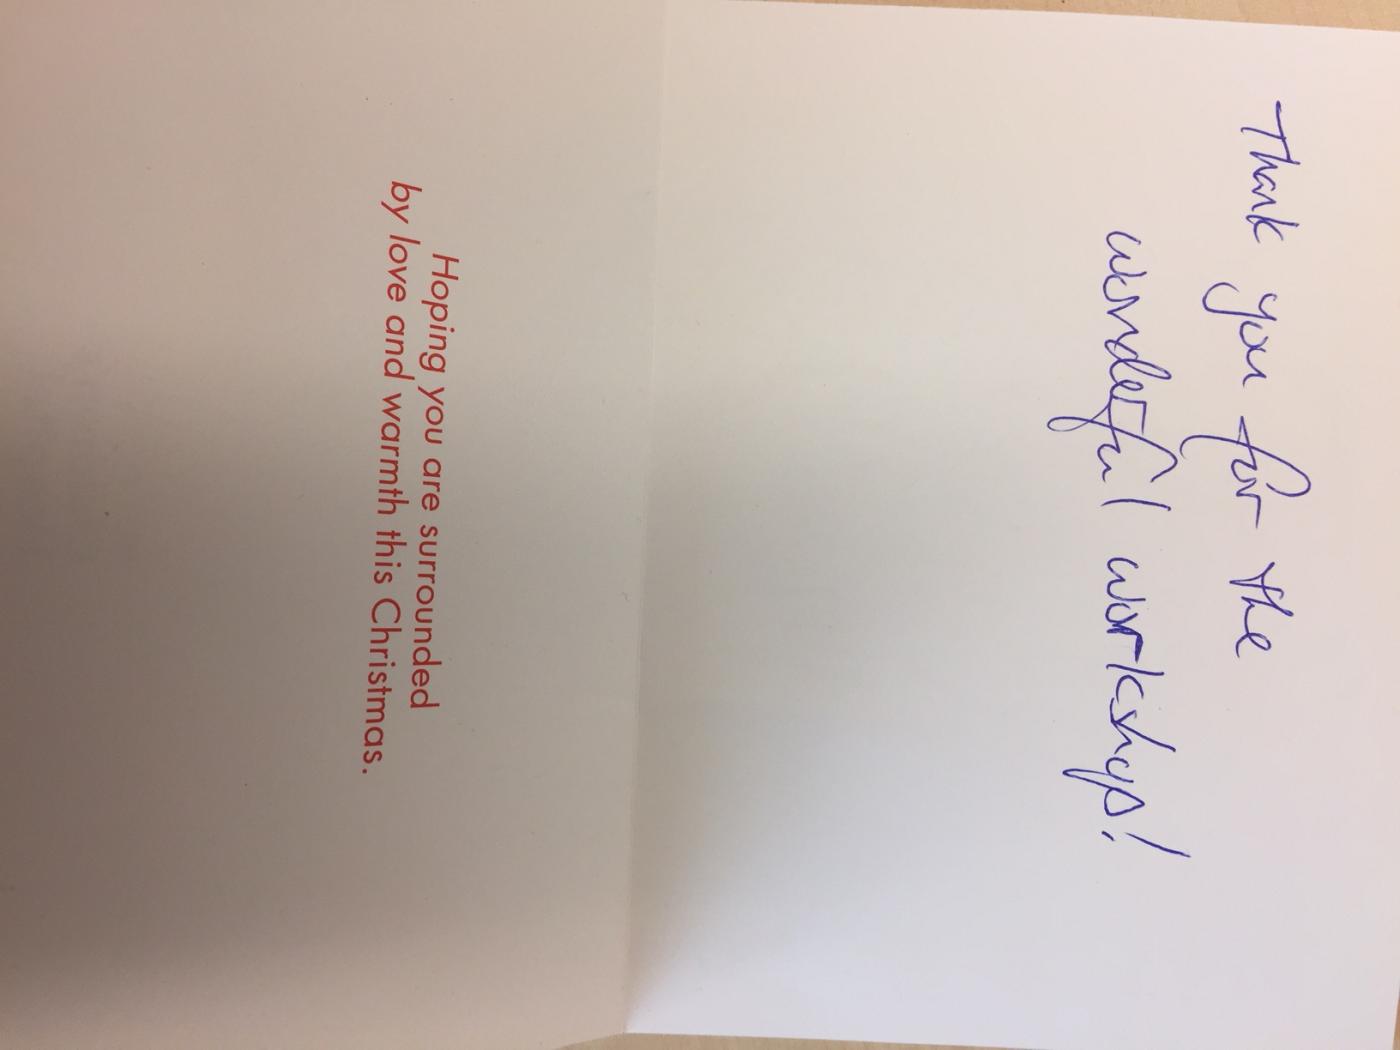 Thank you for the
wonderful workshop!
Hoping you are surrounded
by love and warmth this Christmas.